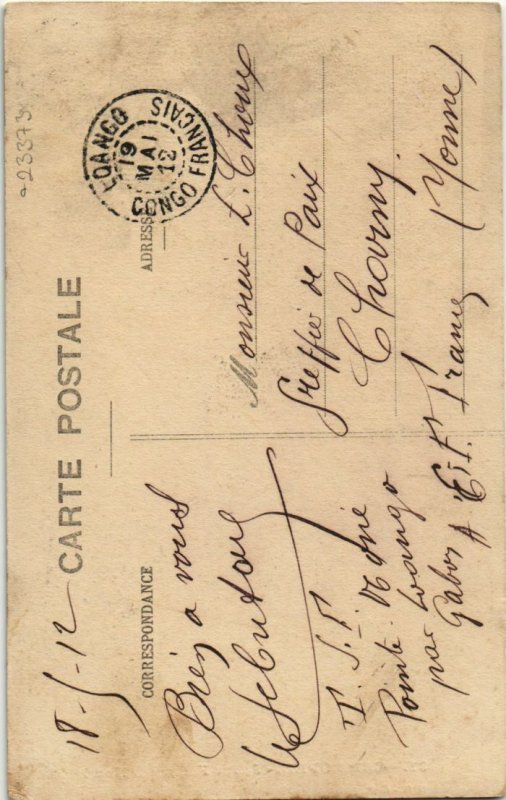 a 23373
CARTE POSTALE
CORRESPONDANCE
ADRESSE
LOANGO
19
MAI
12
CONGO FRANÇAIS
18-5-12
Bien à vous
T.S.F.
Pointe Noire
par Loango
Gabon A.E.F.
Monsieur L. Choux
Greffier de Paix
Charny
(Yonne)
France